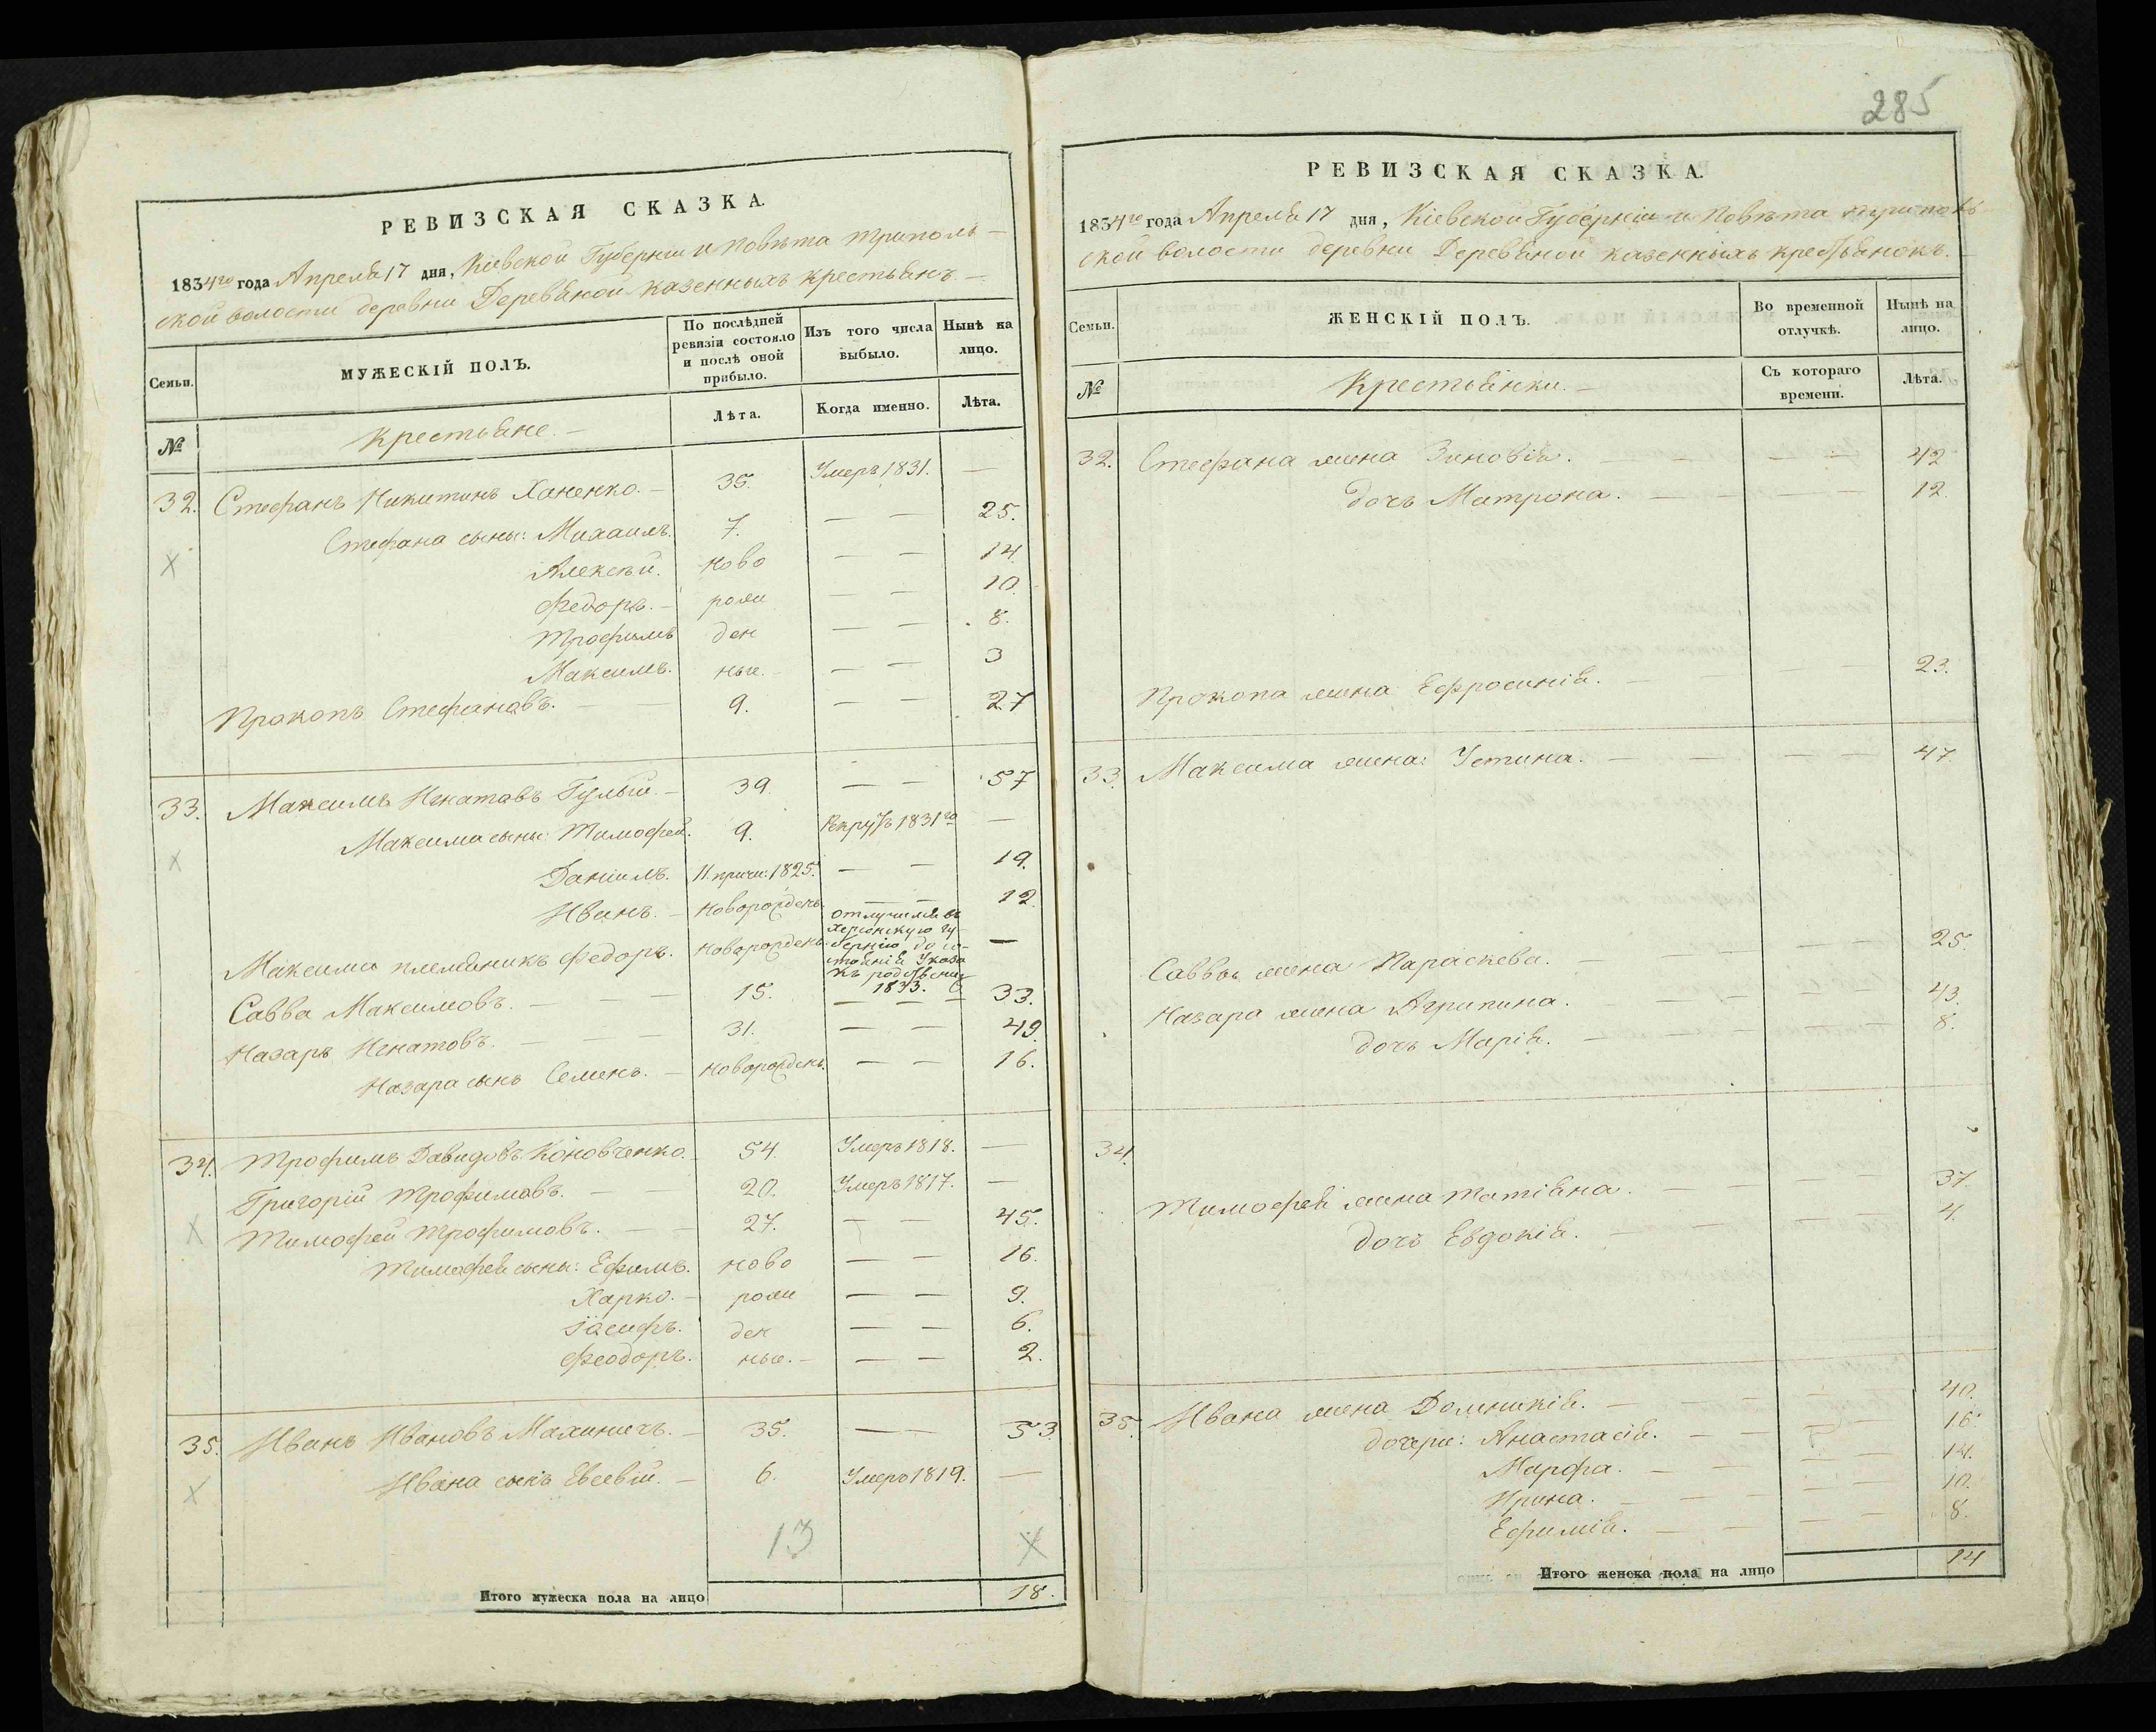 РЕВИЗСКАЯ СКАЗКА.
1834го года Апреля 17 дня, Кіевской Губерніи и Повѣта Триполь-
ской волости деревни Деревяной казенныхъ крестьянъ
Семьи.
МУЖЕСКІЙ ПОЛЪ.
По послѣдней ревизіи состояло и послѣ оной прибыло.
Изъ того числа выбыло.
Нынѣ на лицо.
№
Крестьяне.
Лѣта.
Когда именно.
Лѣта.
32. Стефанъ Никитинъ Ханенко. 35. Умеръ 1831. —
Стефана сыны: Михаилъ. 7. — — 25.
Алексѣй. ново — — 14.
Федоръ. рож — — 10.
Трофимъ ден — — 8.
Максимъ. ные. — — 3
Прокопъ Стефановъ. 9. — — 27
33. Максимъ Игнатовъ Гулый. 39. — — 57
Максима сыны: Тимофей. 9. Рекрутъ 1831го —
Даніилъ. 11. причи: 1825. — — 19.
Иванъ. новорожденъ. — — 12.
Максима племяникъ Федоръ. новорожденъ. отлучился въ
Херсонскую гу-
бернію до со-
стоянія Указа
къ родствени
1833. —
Савва Максимовъ. 15. — — 33.
Назаръ Игнатовъ. 31. — — 49.
Назара сынъ Семенъ. новорожденъ. — — 16.
34. Трофимъ Давидовъ Коновченко. 54. Умеръ 1818. —
Григорій Трофимовъ. 20. Умеръ 1817. —
Тимофей Трофимовъ. 27. — — 45.
Тимофея сыны: Ефимъ. ново — — 16.
Харко. рож — — 9.
Іосифъ. ден — — 6.
Феодоръ. ные. — — 2.
35. Иванъ Ивановъ Махиничъ. 35. — — 53.
Ивана сынъ Евсевій. 6. Умеръ 1819. —
13
Итого мужеска пола на лицо 18.
285
РЕВИЗСКАЯ СКАЗКА.
1834го года Апреля 17 дня, Кіевской Губерніи и Повѣта Триполь
ской волости деревни Деревяной казенныхъ крестьянокъ.
Семьи.
ЖЕНСКІЙ ПОЛЪ.
Во временной отлучкѣ.
Нынѣ на лицо.
№
Крестьянки.
Съ котораго времени.
Лѣта.
32. Стефана жена Зиновія. — — 42
дочъ Матрона. — — 12.
Прокопа жена Ефросинія. — — 23.
33. Максима жена: Устина. — — 47.
Саввы жена Параскева. — — 25.
Назара жена Агрипина. — — 43.
дочъ Марія. — — 8.
34.
Тимофея жена Татіяна. — — 37.
дочъ Евдокія. — — 4.
35. Ивана жена Домникія. — — 40.
дочери: Анастасія. — — 16.
Марфа. — — 14.
Ирина. — — 10.
Ефимія. — — 8.
Итого женска пола на лицо 14